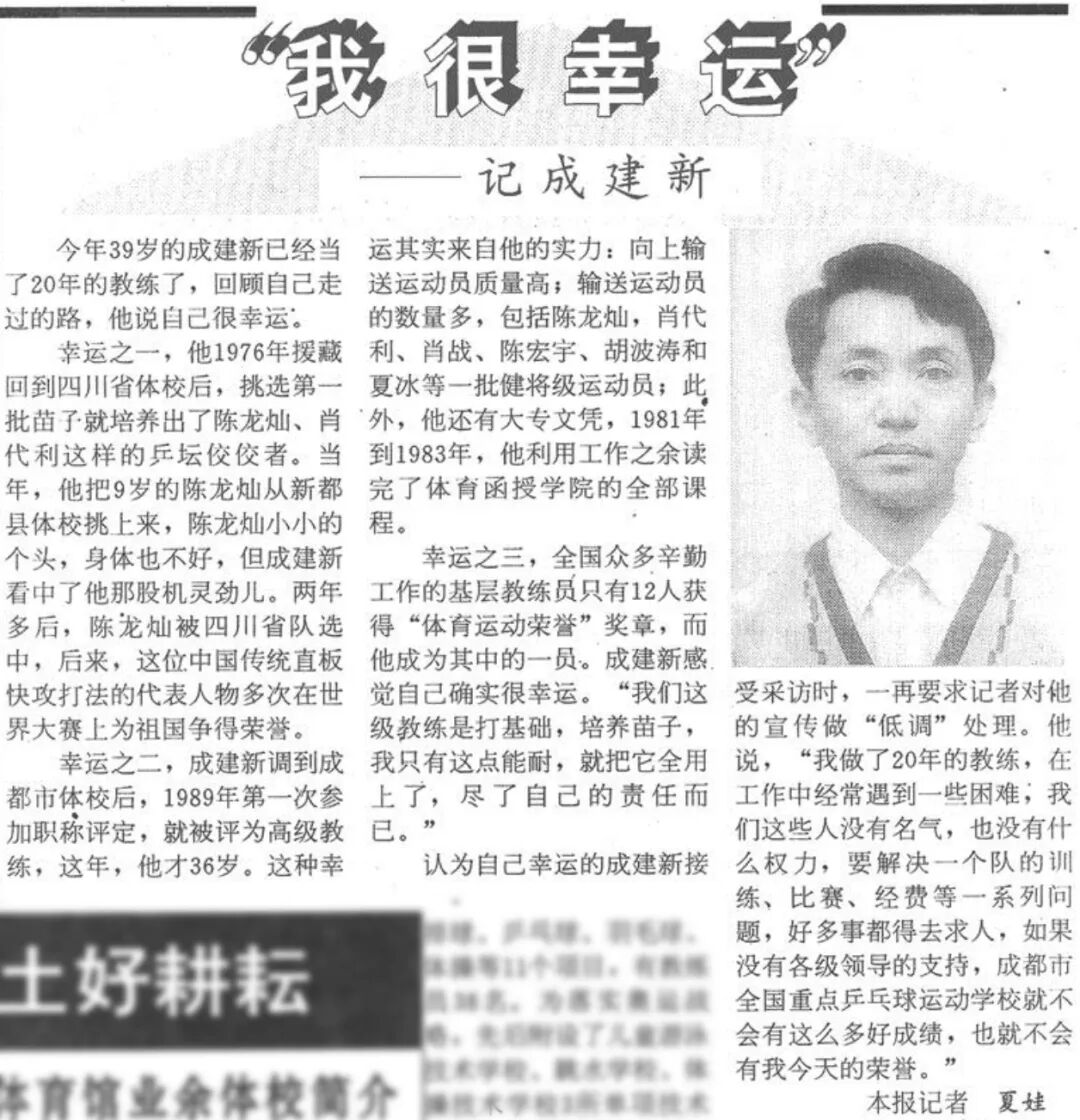 “我很幸运”
——记成建新
今年39岁的成建新已经当
了20年的教练了，回顾自己走
过的路，他说自己很幸运。
幸运之一，他1976年援藏
回到四川省体校后，挑选第一
批苗子就培养出了陈龙灿、肖
代利这样的乒坛佼佼者。当
年，他把9岁的陈龙灿从新都
县体校挑上来，陈龙灿小小的
个头，身体也不好，但成建新
看中了他那股机灵劲儿。两年
多后，陈龙灿被四川省队选
中，后来，这位中国传统直板
快攻打法的代表人物多次在世
界大赛上为祖国争得荣誉。
幸运之二，成建新调到成
都市体校后，1989年第一次参
加职称评定，就被评为高级教
练，这年，他才36岁。这种幸
运其实来自他的实力：向上输
送运动员质量高；输送运动员
的数量多，包括陈龙灿，肖代
利、肖战、陈宏宇、胡波涛和
夏冰等一批健将级运动员；此
外，他还有大专文凭，1981年
到1983年，他利用工作之余读
完了体育函授学院的全部课
程。
幸运之三，全国众多辛勤
工作的基层教练员只有12人获
得“体育运动荣誉”奖章，而
他成为其中的一员。成建新感
觉自己确实很幸运。“我们这
级教练是打基础，培养苗子，
我只有这点能耐，就把它全用
上了，尽了自己的责任而
已。”
认为自己幸运的成建新接
受采访时，一再要求记者对他
的宣传做“低调”处理。他
说，“我做了20年的教练，在
工作中经常遇到一些困难，我
们这些人没有名气，也没有什
么权力，要解决一个队的训
练、比赛、经费等一系列问
题，好多事都得去求人，如果
没有各级领导的支持，成都市
全国重点乒乓球运动学校就不
会有这么多好成绩，也就不会
有我今天的荣誉。”
本报记者 夏娃
土好耕耘
体育馆业余体校简介